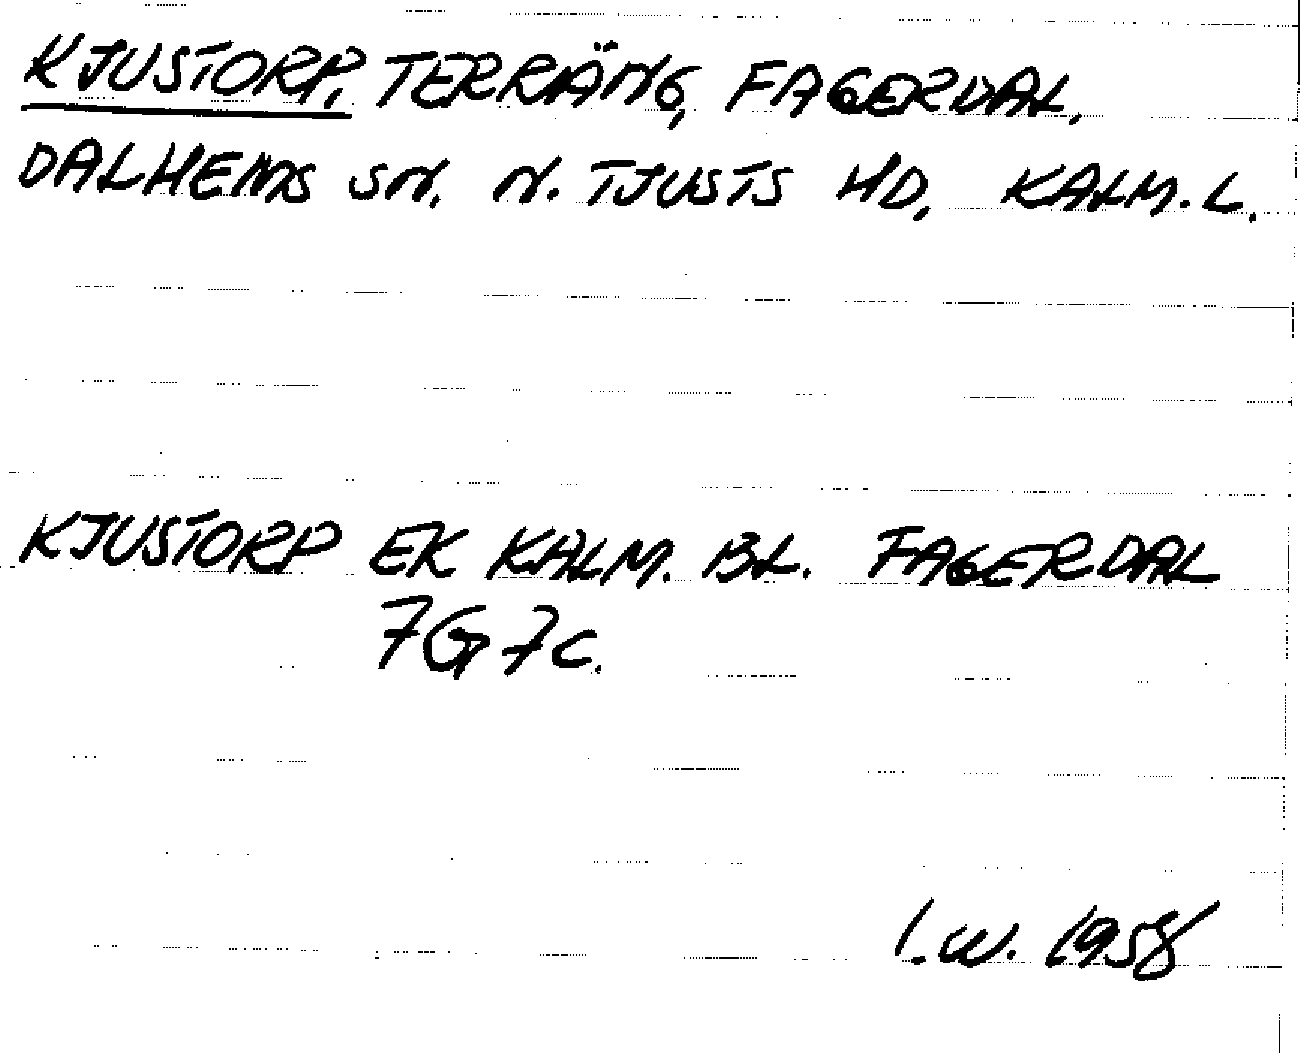 KJUSTORP, TERRÄNG, FAGERDAL,
DALHEMS SN. N. TJUSTS HD, KALM. L.
KJUSTORP EK KALM. BL. FAGERDAL
7G7c.
I.W. 1958